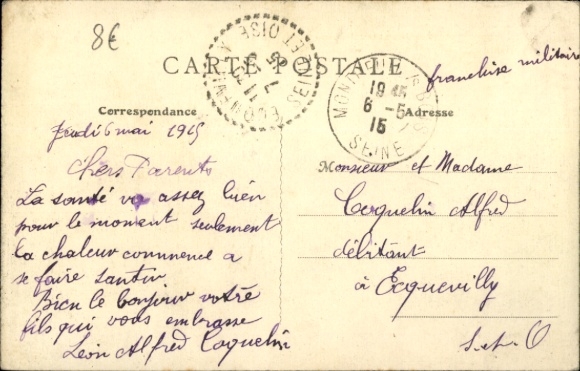 8€
CARTE POSTALE
franchise militaire
SEINE ET OISE
MONTREUIL
19 45
6 -5
15
SEINE
Correspondance
Adresse
Jeudi 6 mai 1915
Chers Parents
La santé va assez bien
pour le moment seulement
la chaleur commence a
se faire santir
Bien le bonjour votre
fils qui vous embrasse
Léon Alfred Coquelin
Monsieur et Madame
Coquelin Alfred
débitant
à Ecquevilly
S-et-O